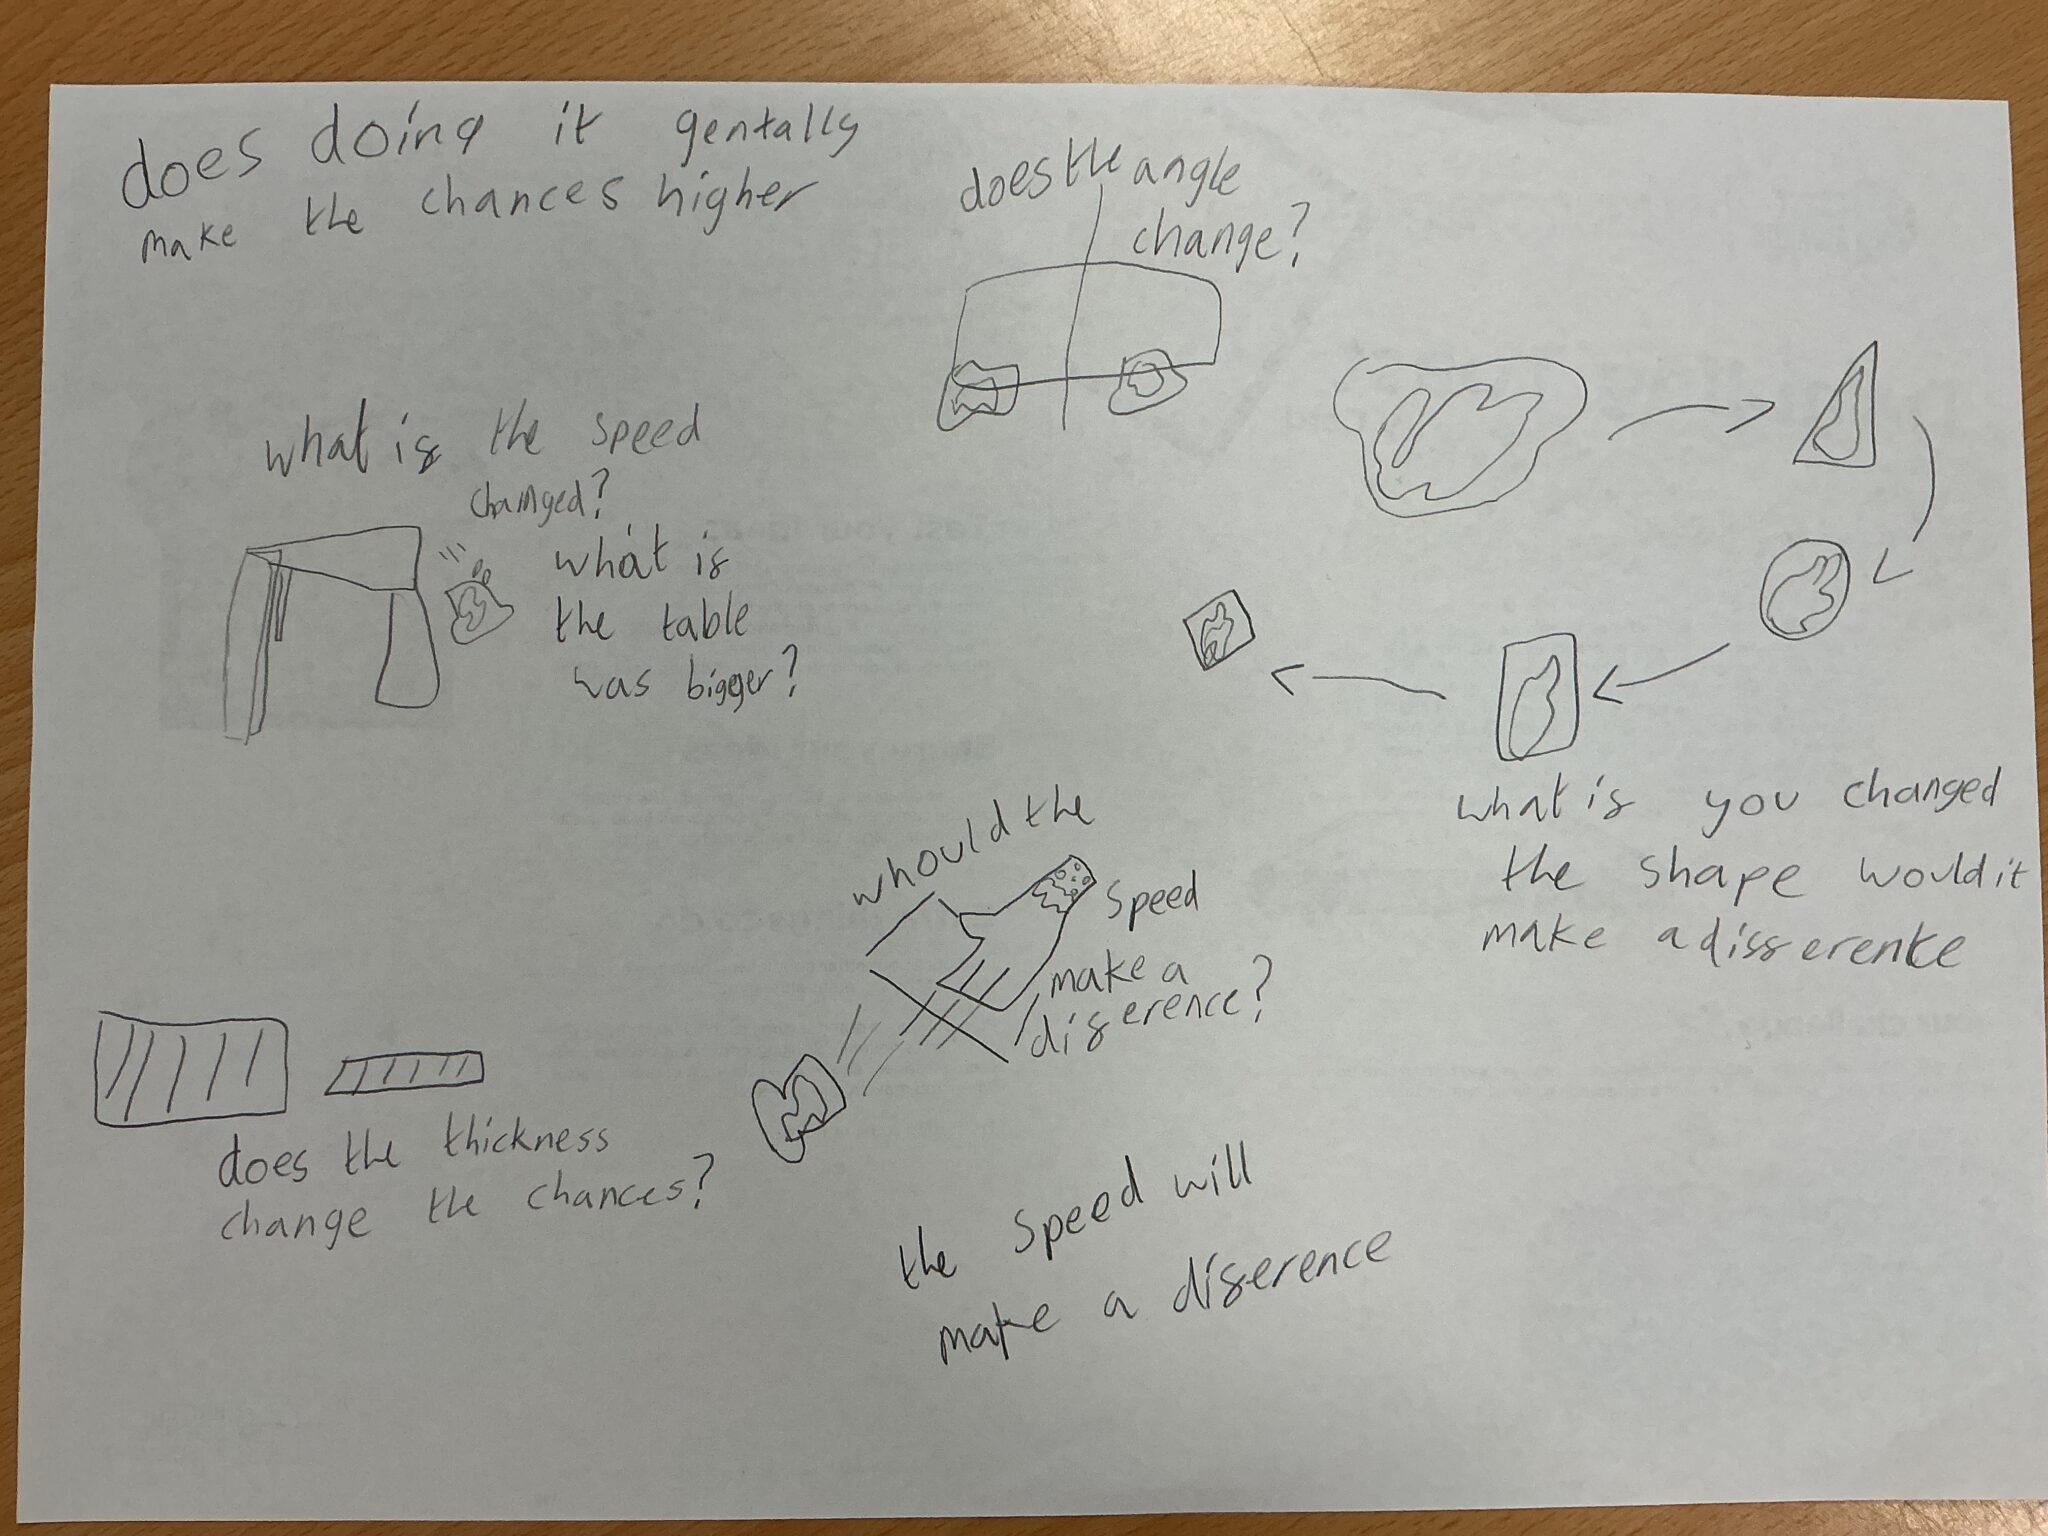 does doing it gentally
make the chances higher
does the angle
change?
what is the speed
changed?
what is
the table
was bigger?
what is you changed
the shape would it
make a disserence
whould the
speed
make a
diserence?
does the thickness
change the chances?
the speed will
make a diserence